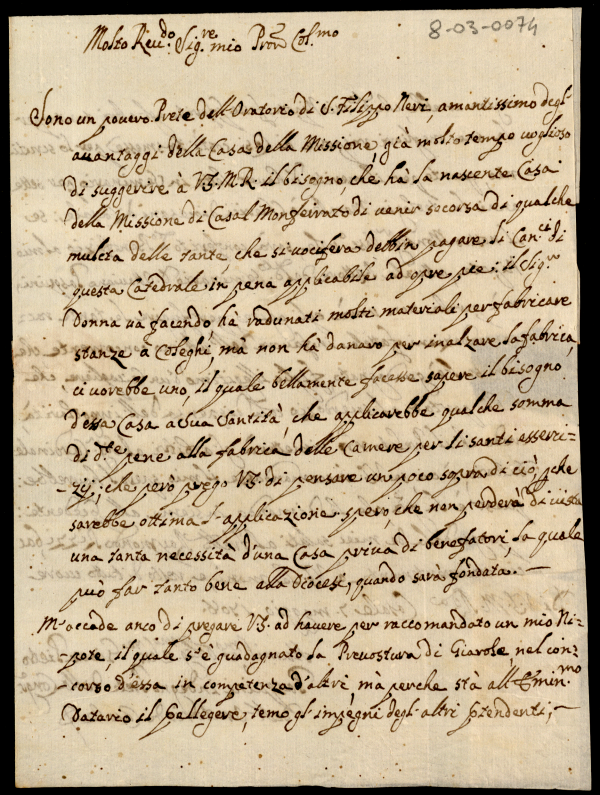 8-03-0074
Molto Reu.do Sig.re mio Pron Col.mo
Sono un pouero Prete dell'Oratorio di S. Filippo Neri, amantissimo degl'
auantaggi della Casa della Missione, già molto tempo voglioso
di suggerire à VS. M. R. il bisogno, che hà la nascente Casa
della Missione di Casal Monferrato di venir socorsa di qualche
mulcta delle tante, che si vocifera debbin pagare li Can.ci di
questa Catedrale in pena applicabile ad opre pie: il Sig.r
Donna và facendo, hà radunati molti materiali per fabricare
stanze à Coleghi, mà non hà danaro per inalzare la fabrica,
ci vorebbe uno, il quale bellamente facesse sapere il bisogno
d'essa Casa a Sua Santità, che applicarebbe qualche somma
di d.te pene alla fabrica delle Camere per li santi esserci-
-zij; che però prego VS. di pensare un poco sopra di ciò, pche
sarebbe ottima l'applicazione: spero, che non perderà di vista
una tanta necessità d'una Casa priva di benefatori, la quale
può far tanto bene alla Diocesi, quando sarà fondata. —
M'accade anco di pregare VS. ad hauere per raccomandato un mio Ni-
-pote, il quale s'è guadagnato la Preuostura di Giarole, nel con-
-corso d'essa in competenza d'altri, mà perche stà all'Emin.mo
Datario il ellegere, temo gl'impegni degl'altri ptendenti; —